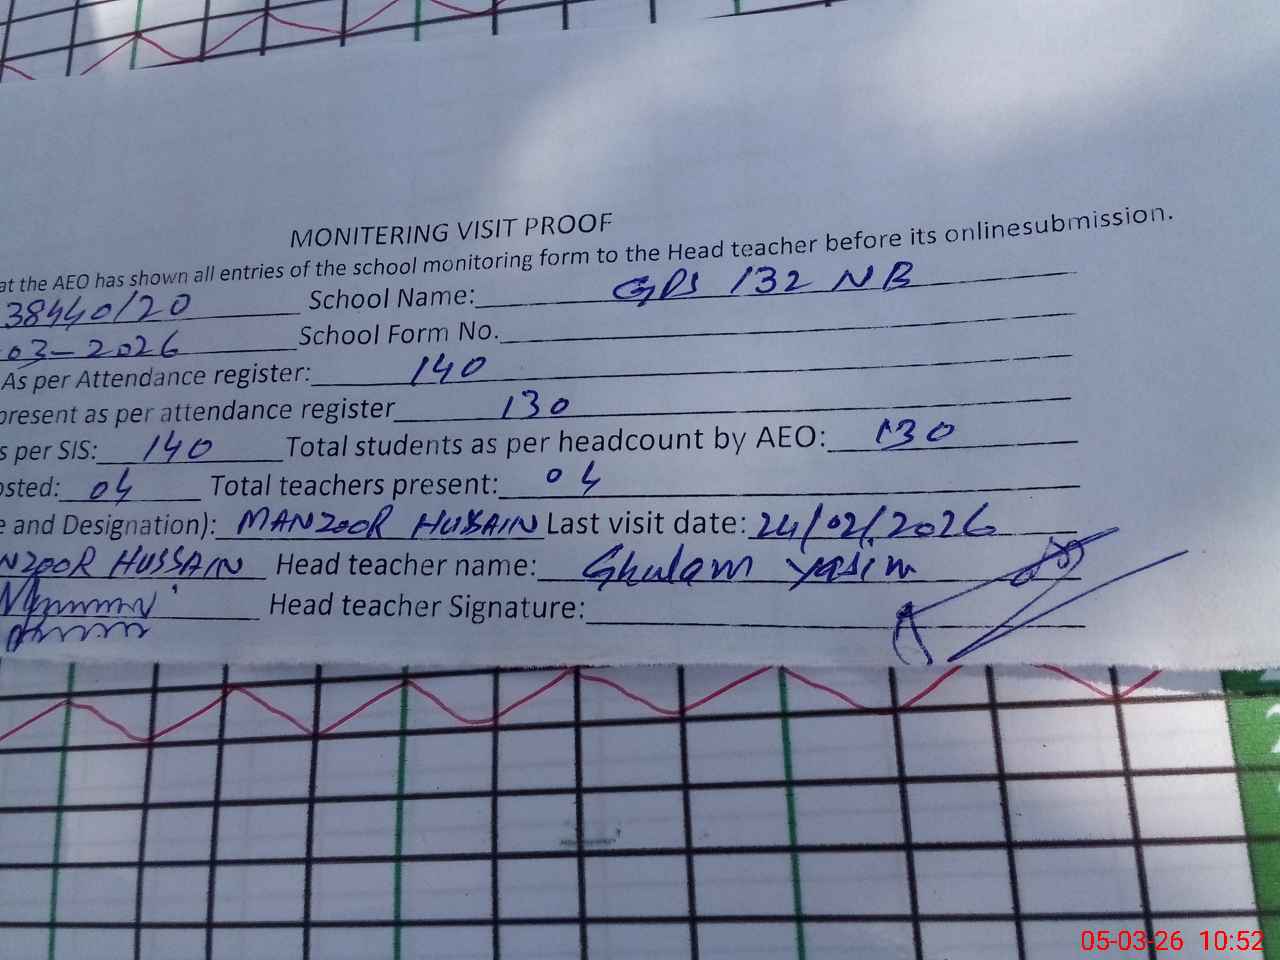 MONITERING VISIT PROOF
at the AEO has shown all entries of the school monitoring form to the Head teacher before its onlinesubmission.
38440120 School Name: GPS 132 NB
03-2026 School Form No.
As per Attendance register: 140
present as per attendance register 130
s per SIS: 140 Total students as per headcount by AEO: 130
osted: 04 Total teachers present: 04
e and Designation): MANZOOR HUSSAIN Last visit date: 24/02/2026
NZOOR HUSSAIN Head teacher name: Ghulam yasim
Head teacher Signature:
05-03-26 10:52